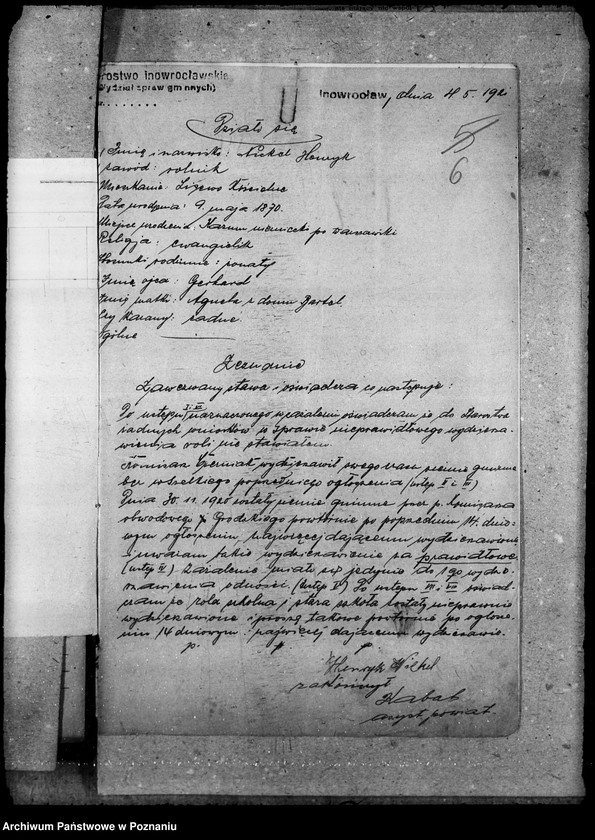 rostwo Inowrocławskie
ydział spraw gminnych)
Inowrocław, dnia 4. 5. 192
5
6
Działo się
Imię i nazwisko: Henryk
zawód: rolnik
Mieszkanie: Kościelne
Data urodzenia: 9. maja 1870.
Miejsce urodzenia: po warszawski
Religja: ewangielik
Stosunki rodzinne: żonaty
Imię ojca: Gerhard
Imię matki: Agneta z domu Bartel
Czy karany: żadne
Ogólne
Zeznanie
Zawezwany stawa i oświadcza co następuje:
Do ustępu I i II oświadczam że do Starostwa
żadnych wniosków w sprawie nieprawidłowego wydzierża-
wienia roli nie stawiałem.
Komisarz wydzierżawił swego czasu ziemie gminne
bez wszelkiego poprzedniego ogłoszenia (ustęp II i III)
Dnia 30. 11. 1920 zostały ziemie gminne przez p. Komisarza
obwodowego Grodzkiego powtórnie po poprzedniem 14. dnio-
wym ogłoszeniu, najwięcej dającemu wydzierżawione
i uważam takie wydzierżawienie za prawidłowe
(ustęp IV) Zażalenie się jedynie do 1go wydzier-
żawienia odnosi. (Ustęp V) Do ustępu VI i VII oświad-
czam że rola szkolna / stara szkoła zostały nieprawnie
wydzierżawione i proszę takowe powtórnie po ogłosze-
niu 14 dniowym najwięcej dającemu wydzierżawić.
p.
Henryk
zakończył
Kabat
asyst. powiat.
Archiwum Państwowe w Poznaniu